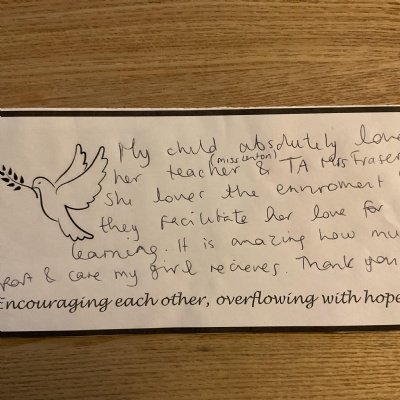 My child absolutely love
(miss Lenton)
her teacher & TA Mrs Fraser
She loves the enviroment
they facilitate her love for
learning. It is amazing how mu
& care my girl recieves. Thank you
Encouraging each other, overflowing with hope